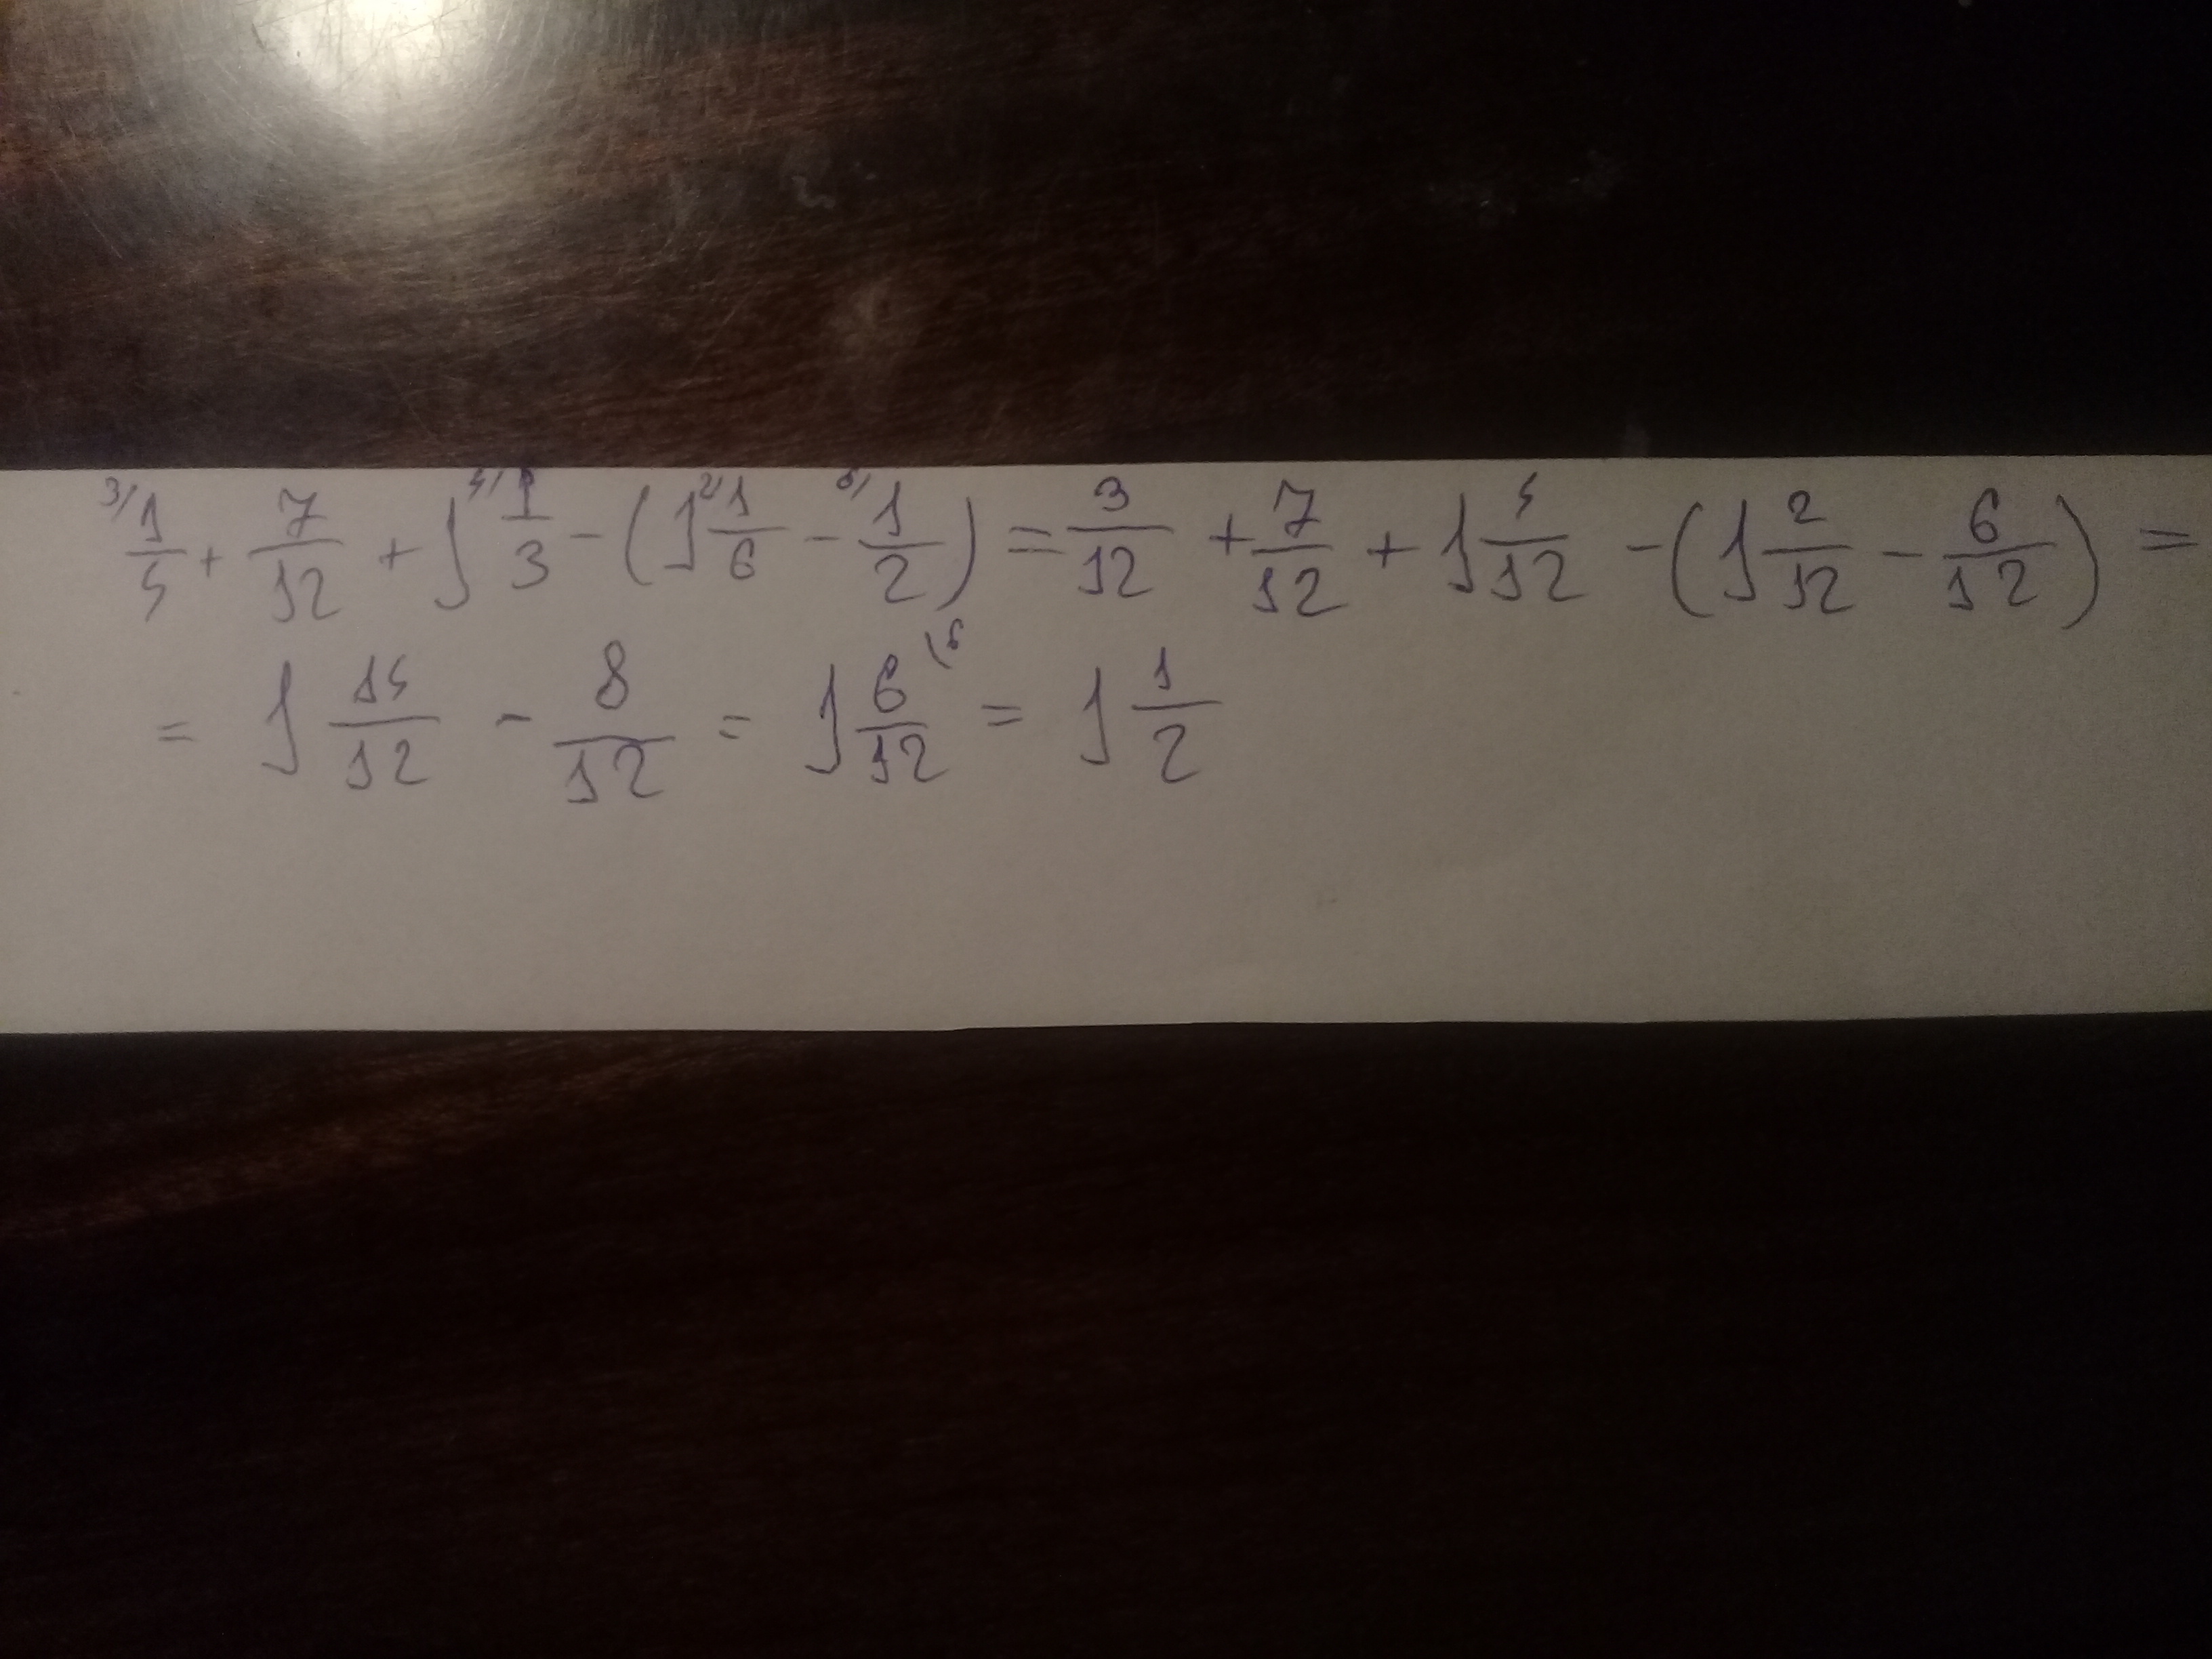 3/ 1/4 + 7/12 + 1 4/ 1/3 - (1 2/ 1/6 - 6/ 1/2) = 3/12 + 7/12 + 1 4/12 - (1 2/12 - 6/12) =
= 1 14/12 - 8/12 = 1 6/12 \6 = 1 1/2